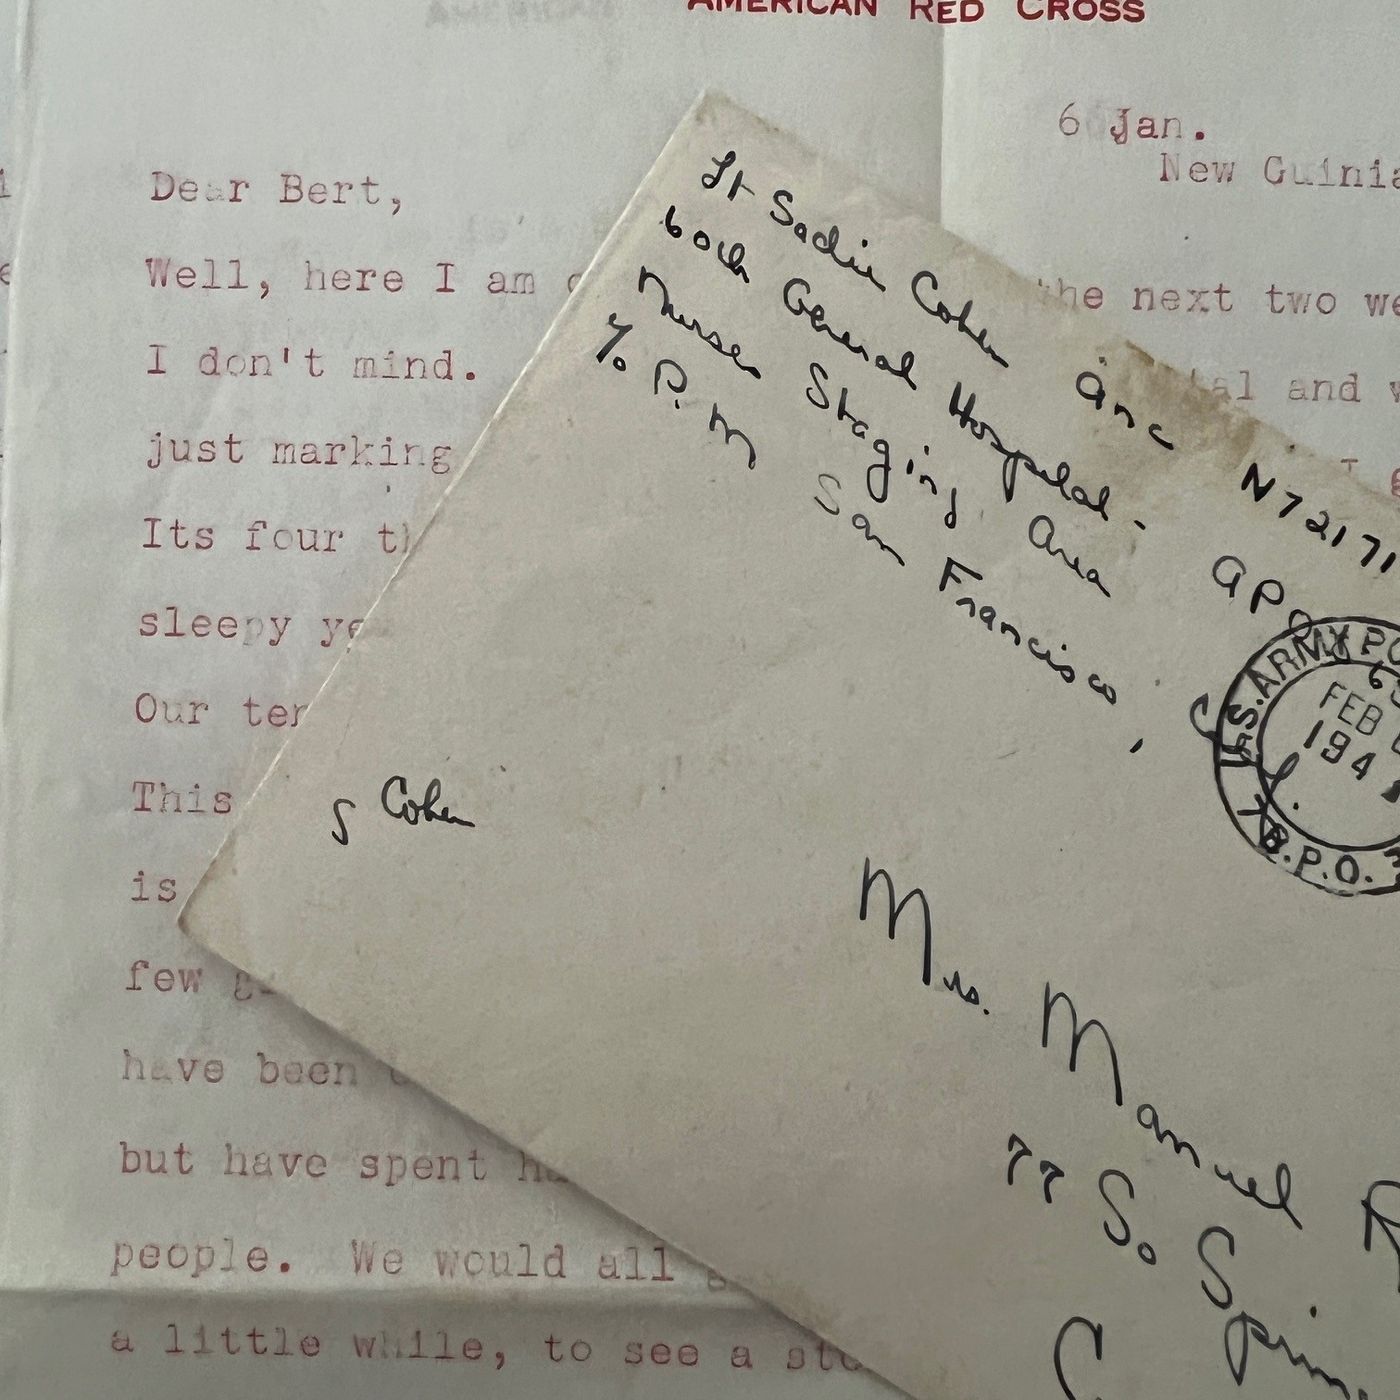 AMERICAN RED CROSS
6 Jan.
New Guinia
Dear Bert,
Well, here I am
the next two we
I don't mind.
al and w
just marking
Its four th
sleepy ye
Our ten
This
is
few
have been
but have spent ha
people. We would all
a little while, to see a sto
Lt Sadie Cohen anc N72171
60th General Hospital - APO
Nurses Staging Area
c/o P.M San Francisco, Cal.
S Cohen
U.S. ARMY PO
FEB
194
A.P.O.
Mrs. Manuel R
77 So Sprin
C